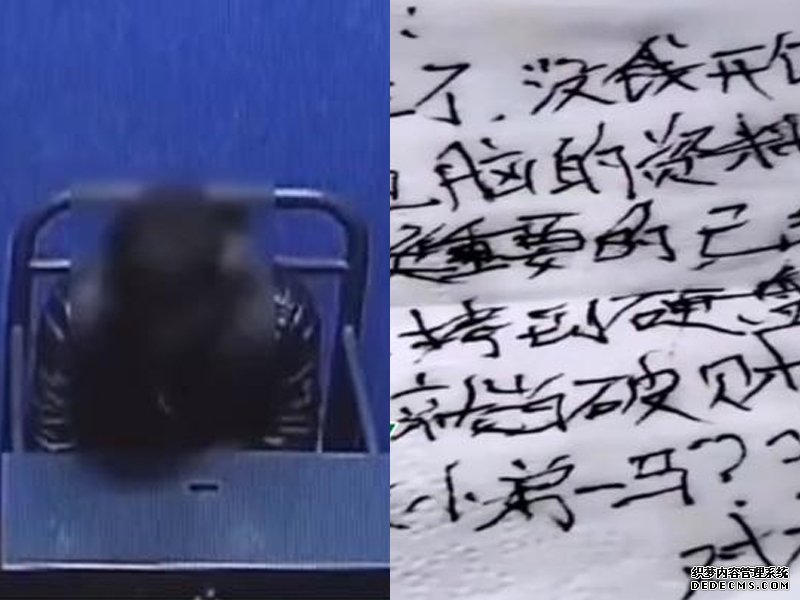 了.没钱开
脑的资料
重要的已
拷到硬盘
就当破财
小弟一马?
织梦内容管理系统
DEDECMS.COM